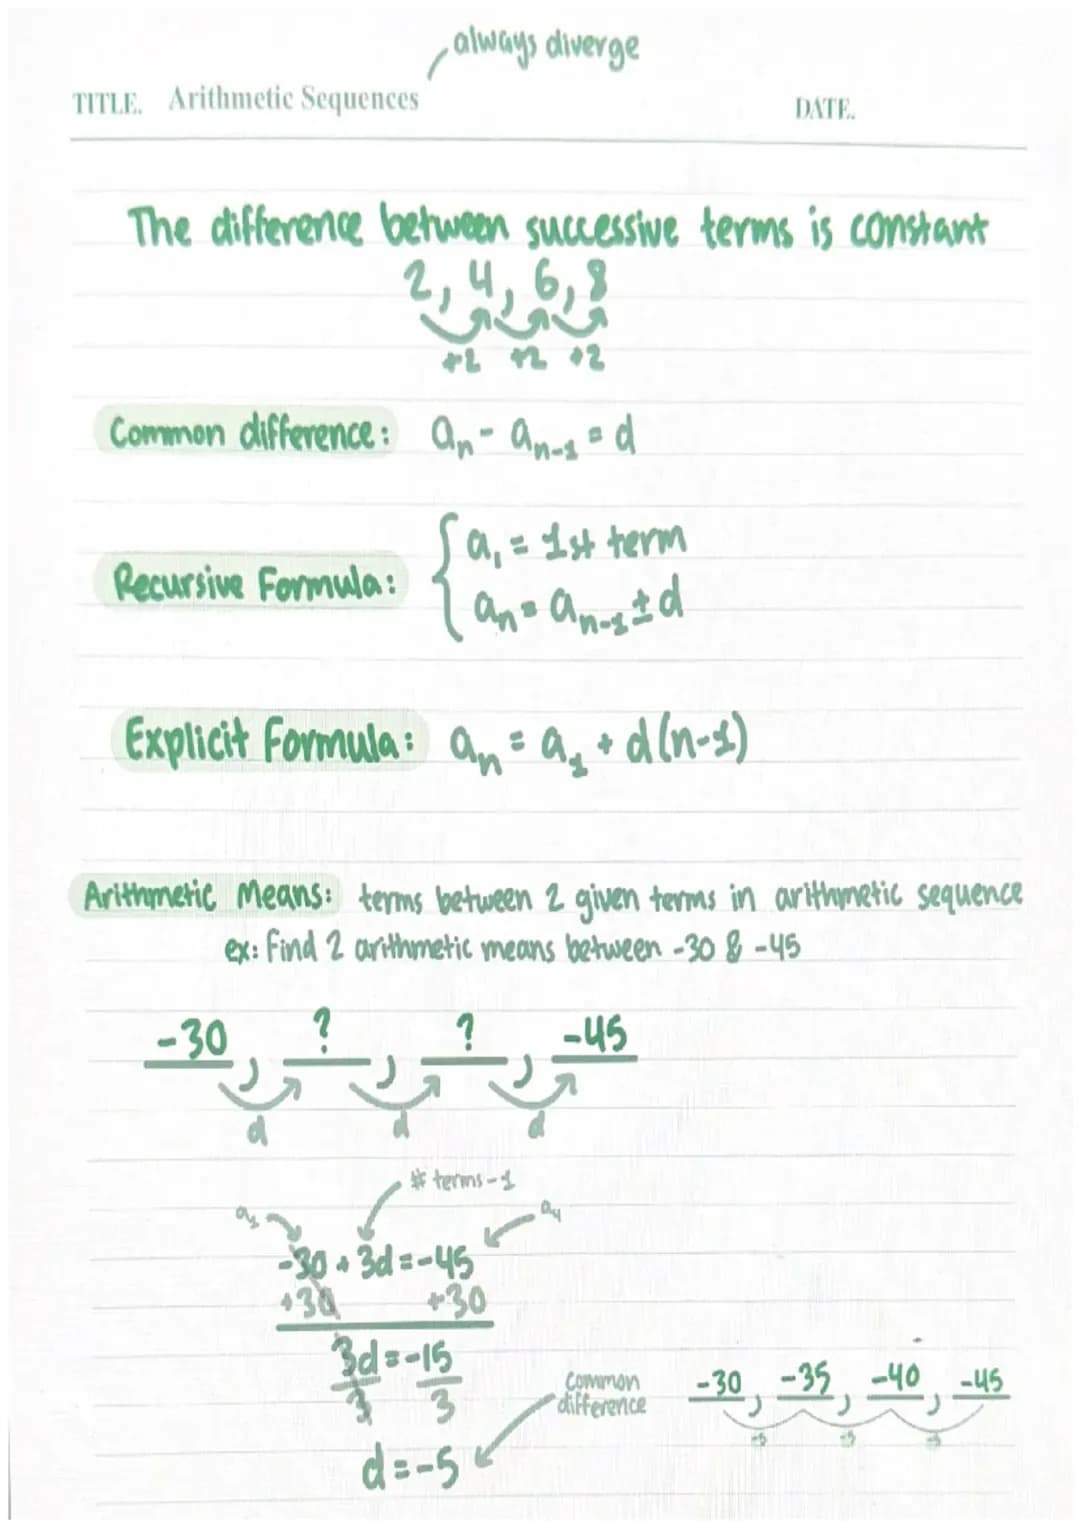 always diverge
TITLE. Arithmetic Sequences DATE.
The difference between successive terms is constant
2, 4, 6, 8
+2 +2 +2
Common difference: aₙ - aₙ₋₁ = d
Recursive Formula: { a₁ = 1st term
aₙ = aₙ₋₁ ± d
Explicit Formula: aₙ = a₁ + d(n-1)
Arithmetic Means: terms between 2 given terms in arithmetic sequence
ex: Find 2 arithmetic means between -30 & -45
-30, ?, ?, -45
d d d
# terms-1
a₁ a₄
-30 + 3d = -45
+30 +30
3d = -15
3 3
common
difference
-30, -35, -40, -45
-5 -5 -5
d = -5